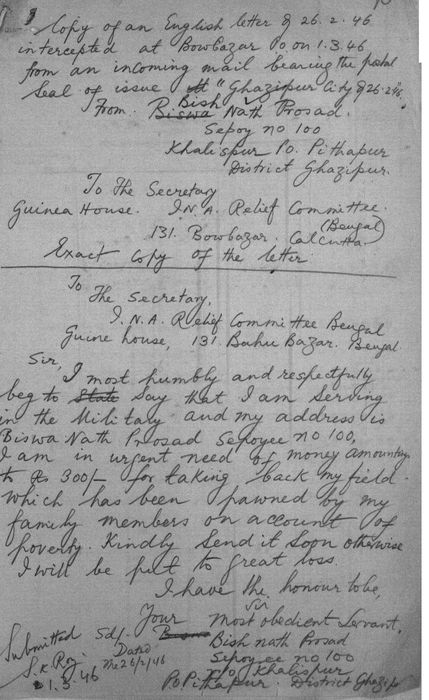 Copy of an English letter of 26.2.46
intercepted at Bowbazar P.O. on 1.3.46
from an incoming mail bearing the postal
Seal of issue "Ghazipur City of 26.2.46
From. Biswa Bish Nath Prosad.
Sepoy no 100
Khalispur P.O. Pithapur
District Ghazipur.
To The Secretary
Guinea House. I.N.A. Relief Committee.
(Bengal)
131. Bowbazar. Calcutta.
Exact Copy of the letter.
To
The Secretary,
I.N.A. Relief Committee Bengal
Guine house, 131. Bahu Bazar. Bengal
Sir,
I most humbly and respectfully
beg to State Say that I am Serving
in the Military and my address is
Biswa Nath Prosad Sepoyee no 100,
I am in urgent need of money amounting
to Rs 300/- for taking back my field.
which has been pawned by my
family members on account of
poverty. Kindly Send it Soon otherwise
I will be put to great loss.
I have the honour to be,
Sir
Your most obedient Servant,
Submitted Sdf. Bish nath Prosad
Dated
S.K Roy. The 26/2/46 Sepoy ee no 100
1.3.46 Khalispur
P.O Pithapur. District Ghazip